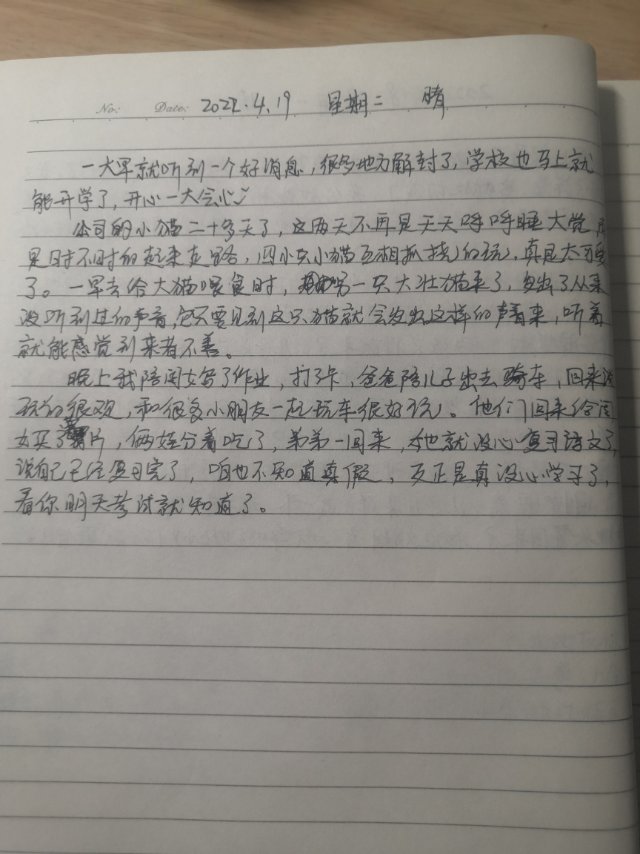 No: Date: 2022.4.19 星期二 晴
一大早就听到一个好消息，很多地方解封了，学校也马上就
能开学了，开心一大会心
公司的小猫二十多天了，这两天不再是天天呼呼睡大觉，
是时不时的起来走路，四小只小猫互相抓挠的玩，真是太可爱
了。一早去给大猫喂食时，另一只大壮猫来了，发出了从来
没听到过的声音，它只要见到这只猫就会发出这样的声音来，听着
就能感觉到来者不善。
晚上我陪闺女写了作业，打了卡，爸爸陪儿子出去骑车，回来说
玩的很欢，和很多小朋友一起玩车很好玩。他们回来给闺
女买了薯片，俩娃分着吃了，弟弟一回来，她就没心复习语文了，
说自己已经复习完了，咱也不知道真假，反正是真没心学习了，
看你明天考试就知道了。